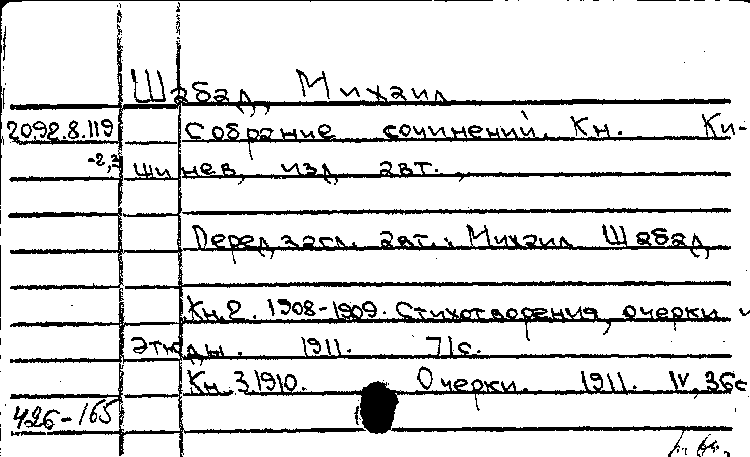 Шабад, Михаил
2092.8.119 Собрание сочинений. Кн. Ки-
-2,3 шинев, изд. авт.,
Перед загл. авт.: Михаил Шабад
Кн.2. 1908-1909. Стихотворения, очерки и
этюды. 1911. 71с.
Кн.3.1910. Очерки. 1911. IV, 36с
426-165